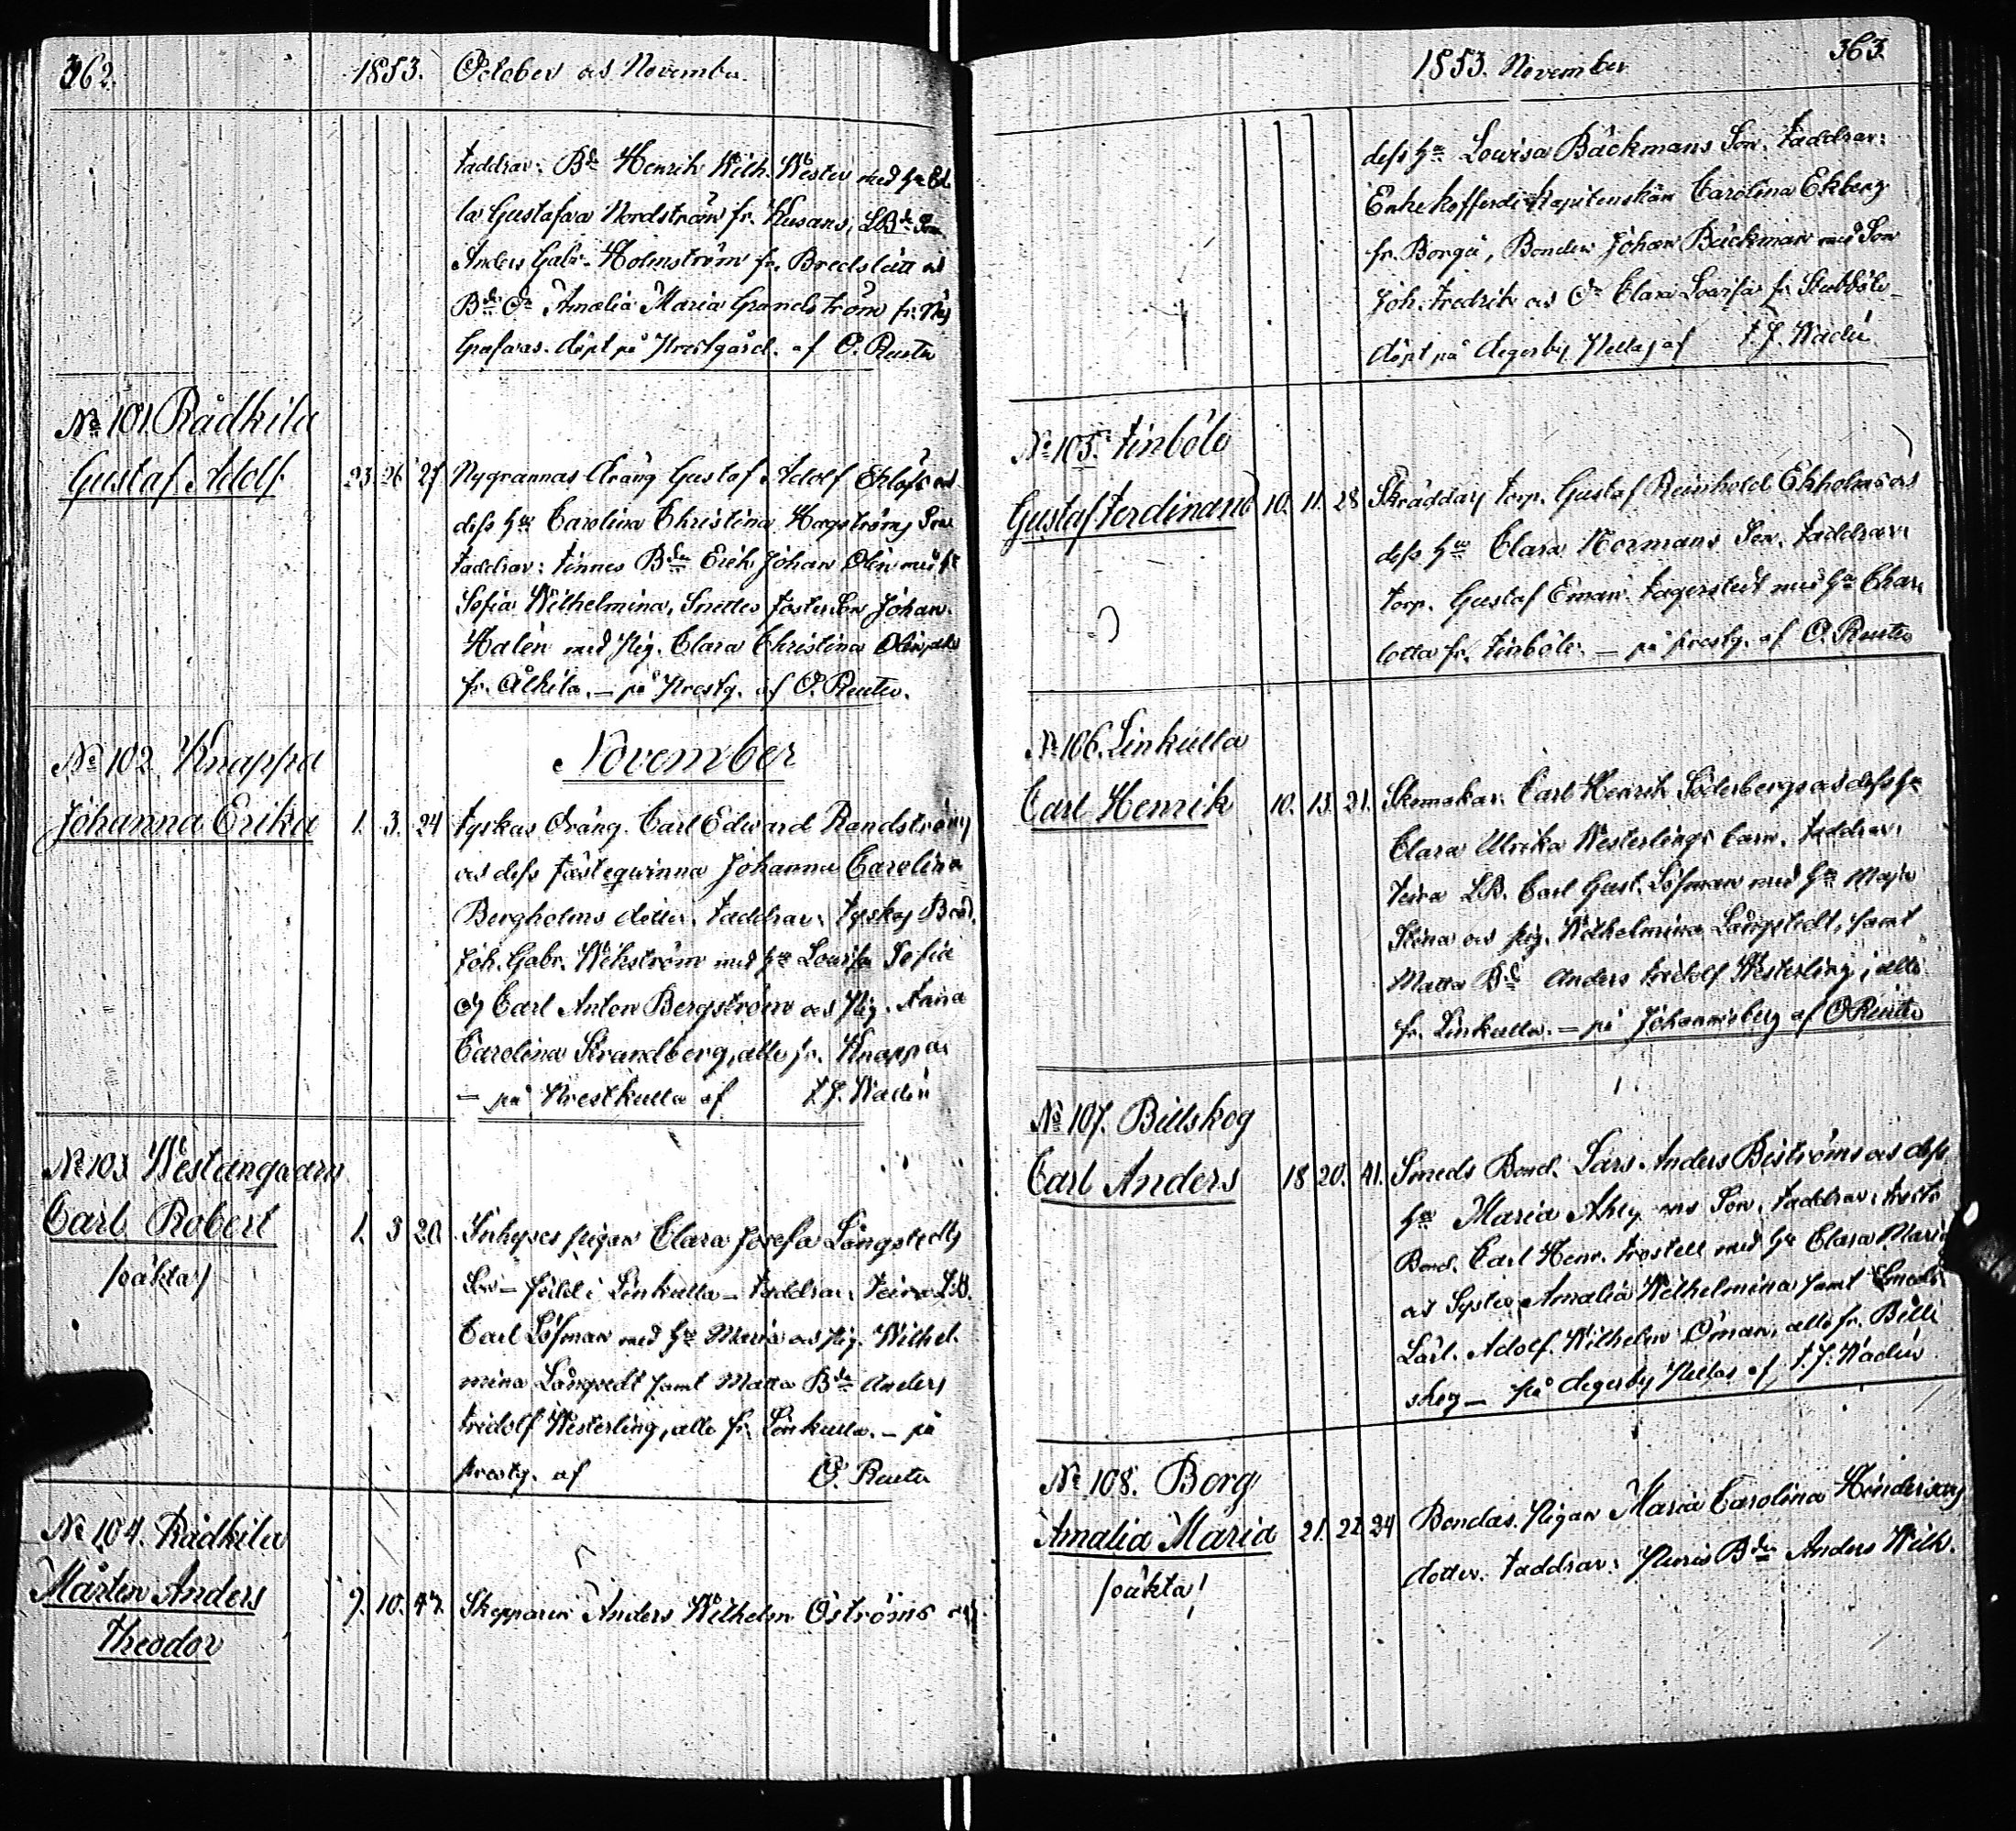 362. 1853. October och November.
Faddrar: Bdn Henrik Wilh. Wester med hu Ed
la Gustafva Nordström fr. Kusans, LBds Son
Anders Gabr. Holmström fr. Bredslätt och
Bds Dr Amalia Maria Grandström fr.
Grefvas. döpt på Prestgård. af O. Reuter
No 101. Rådkila
Gustaf Adolf. 23 26 27 Nygrannas dräng Gustaf Adolf Eklöfs och
dess hu Carolina Christina Hagströms Son
Faddrar: Finnes Bdn Erik Johan Olin med hu
Sofia Wilhelmina, Fosterson Johan
Halén med pig. Clara Christina Olin, alla
fr. Ålkila. – på Prestg. af O. Reuter.
November
No 102. Knappa
Johanna Erika 1. 3. 24 Tyskas dräng Carl Edward Randströms
och dess fästeqvinna Johanna Carolina
Bergholms dotter. Faddrar: Tyskas Bond.
Joh. Gabr. Wikström med hu Lovisa Sofia
och Carl Anton Bergström och Pig.
Carolina Strandberg, alla fr. Knappa
– på Prestkulla af F. J. Wadén
No 103 Westanqvarn
Carl Robert 1. 3 20. pigan Clara Josefa Långstedts
/oäkta/ Son – född i Linkulla – Faddrar: Teirs LB.
Carl Löfman med hu Maria och pig. Wilhel-
mina Långstedt samt Matts Bdn Anders
Fridolf Westerling, alla fr. Linkulla. – på
Prestg. af O. Reuter
No 104. Rådkila
Mårten Anders 9. 10. 47. Skepparen Anders Wilhelm Öströms och
Theodor
1853. November 363.
dess hu Lovisa Bäckmans Son. Faddrar:
Enkekofferdi Kapitenskan Carolina Ekberg
fr. Borgå, Bonden Johan Bäckman med Son
Joh. Fredrik och Dr Clara Lovisa fr. Stubböle –
döpt på Degerby Pellas af F. J. Wadén.
No 105. Finböle
Gustaf Ferdinand 10. 11. 28 Skräddar Torp. Gustaf Reinhold Ekholms och
dess hu Clara Normans Son. Faddrar:
Torp. Gustaf Eman. Fagerstedt med hu Char-
lotta fr. Finböle. – på prestg. af O. Reuter
No 106. Linkulla
Carl Henrik 10. 13. 21. Skomakar. Carl Henrik Söderbergs och dess hu
Clara Ulrika Westerlings barn. Faddrar:
Teirs LB. Carl Gust. Löfman med hu Maja
Stina och pig. Wilhelmina Långstedt, samt
Matts Bd Anders Fridolf Westerling, alla
fr. Linkulla. – på Johannisberg af O Reuter
No 107. Billskog
Carl Anders 18 20. 41. Smeds Bond. Lars Anders Biströms och dess
hu Maria Son. Faddrar:
Bond. Carl Henr. Frostell med hu Clara Maria
och Syster Amalia Wilhelmina samt Smeds
Lärl. Adolf Wilhelm Öman, alla fr. Bill-
skog – på Degerby Pellas af F. J. Wadén
No 108. Borg
Amalia Maria 21. 22 24 Bondas Pigan Maria Carolina
/oäkta/ dotter. Faddrar: Bdn Anders Wilh.